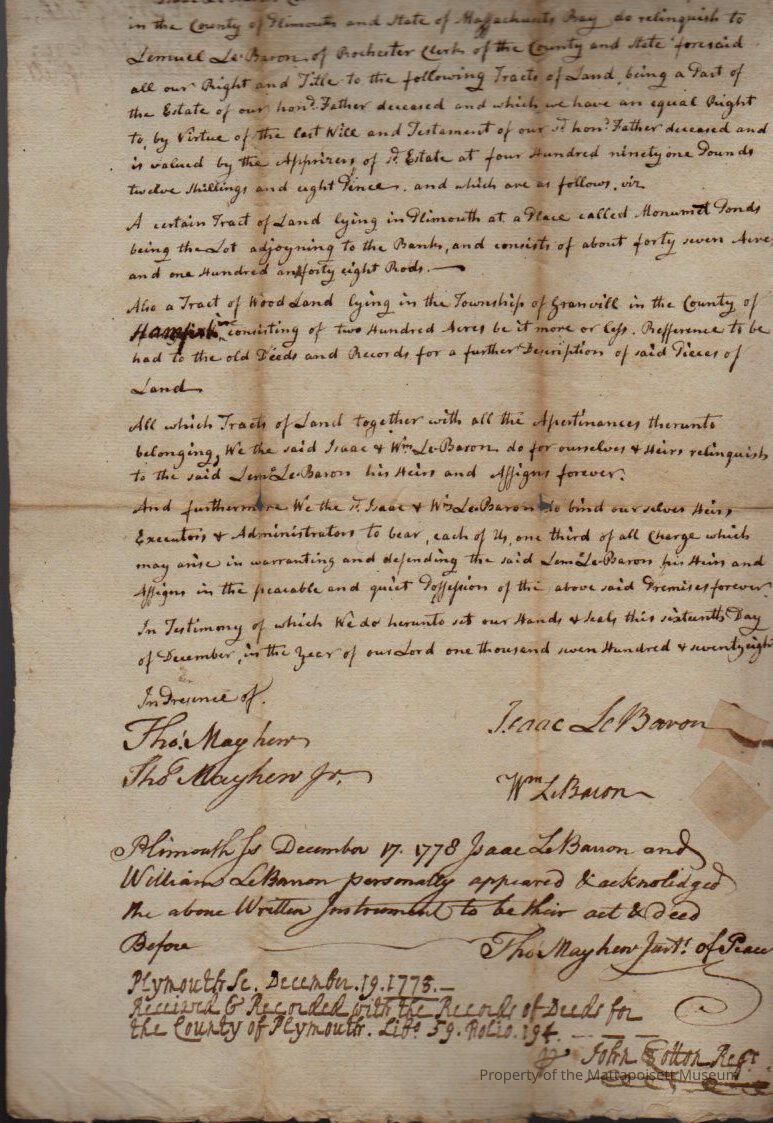 in the County of Plimouth and State of Massachusets Bay do relinquish to
Lemuel LeBaron of Rochester Clerk of the County and State foresaid
all our Right and Title to the following Tracts of Land, being a Part of
the Estate of our hond. Father deceased and which we have an equal Right
to, by Virtue of the last Will and Testament of our sd. hond. Father deceased and
is valued by the Apprizers of sd. Estate at four Hundred ninety one Pounds
twelve Shillings and eight Pence, and which are as follows, viz
A certain Tract of Land lying in Plimouth at a Place called Monumet Ponds
being the Lot adjoyning to the Banks, and consists of about forty seven Acres
and one Hundred and forty eight Rods.
Also a Tract of Wood Land lying in the Township of Granvill in the County of
consisting of two Hundred Acres be it more or less. Refference to be
had to the old Deeds and Records for a further Description of said Pieces of
Land
All which Tracts of Land together with all the Apertinances therunto
belonging, We the said Isaac & Wm LeBaron do for ourselves & Heirs relinquish
to the said Leml. LeBaron his Heirs and Assigns forever.
And furthermore We the sd. Isaac & Wm LeBaron do bind our selves Heirs
Executors & Administrators to bear, each of Us, one third of all Charge which
may arise in warranting and defending the said Leml. LeBaron his Heirs and
Assigns in the peacable and quiet Possession of the above said Premises forever.
In Testimony of which We do herunto set our Hands & Seals this sixteenth Day
of December, in the Year of our Lord one thousand seven Hundred & seventy eight
In Presence of.
Tho: Mayhew Isaac LeBaron
Tho Mayhew Jr. Wm LeBaron
Plimouth Ss December 17. 1778 Isaac LeBaron and
William LeBaron personally appeared & acknolidged
the above Written Instrument to be their act & deed
Before Tho Mayhew Just: of Peace
Plymouth Sc. December. 19. 1778.
Received & Recorded with the Records of Deeds for
the County of Plymouth. Libo. 59. Folio. 194.
John Cotton Regr.
Property of the Mattapoisett Museum